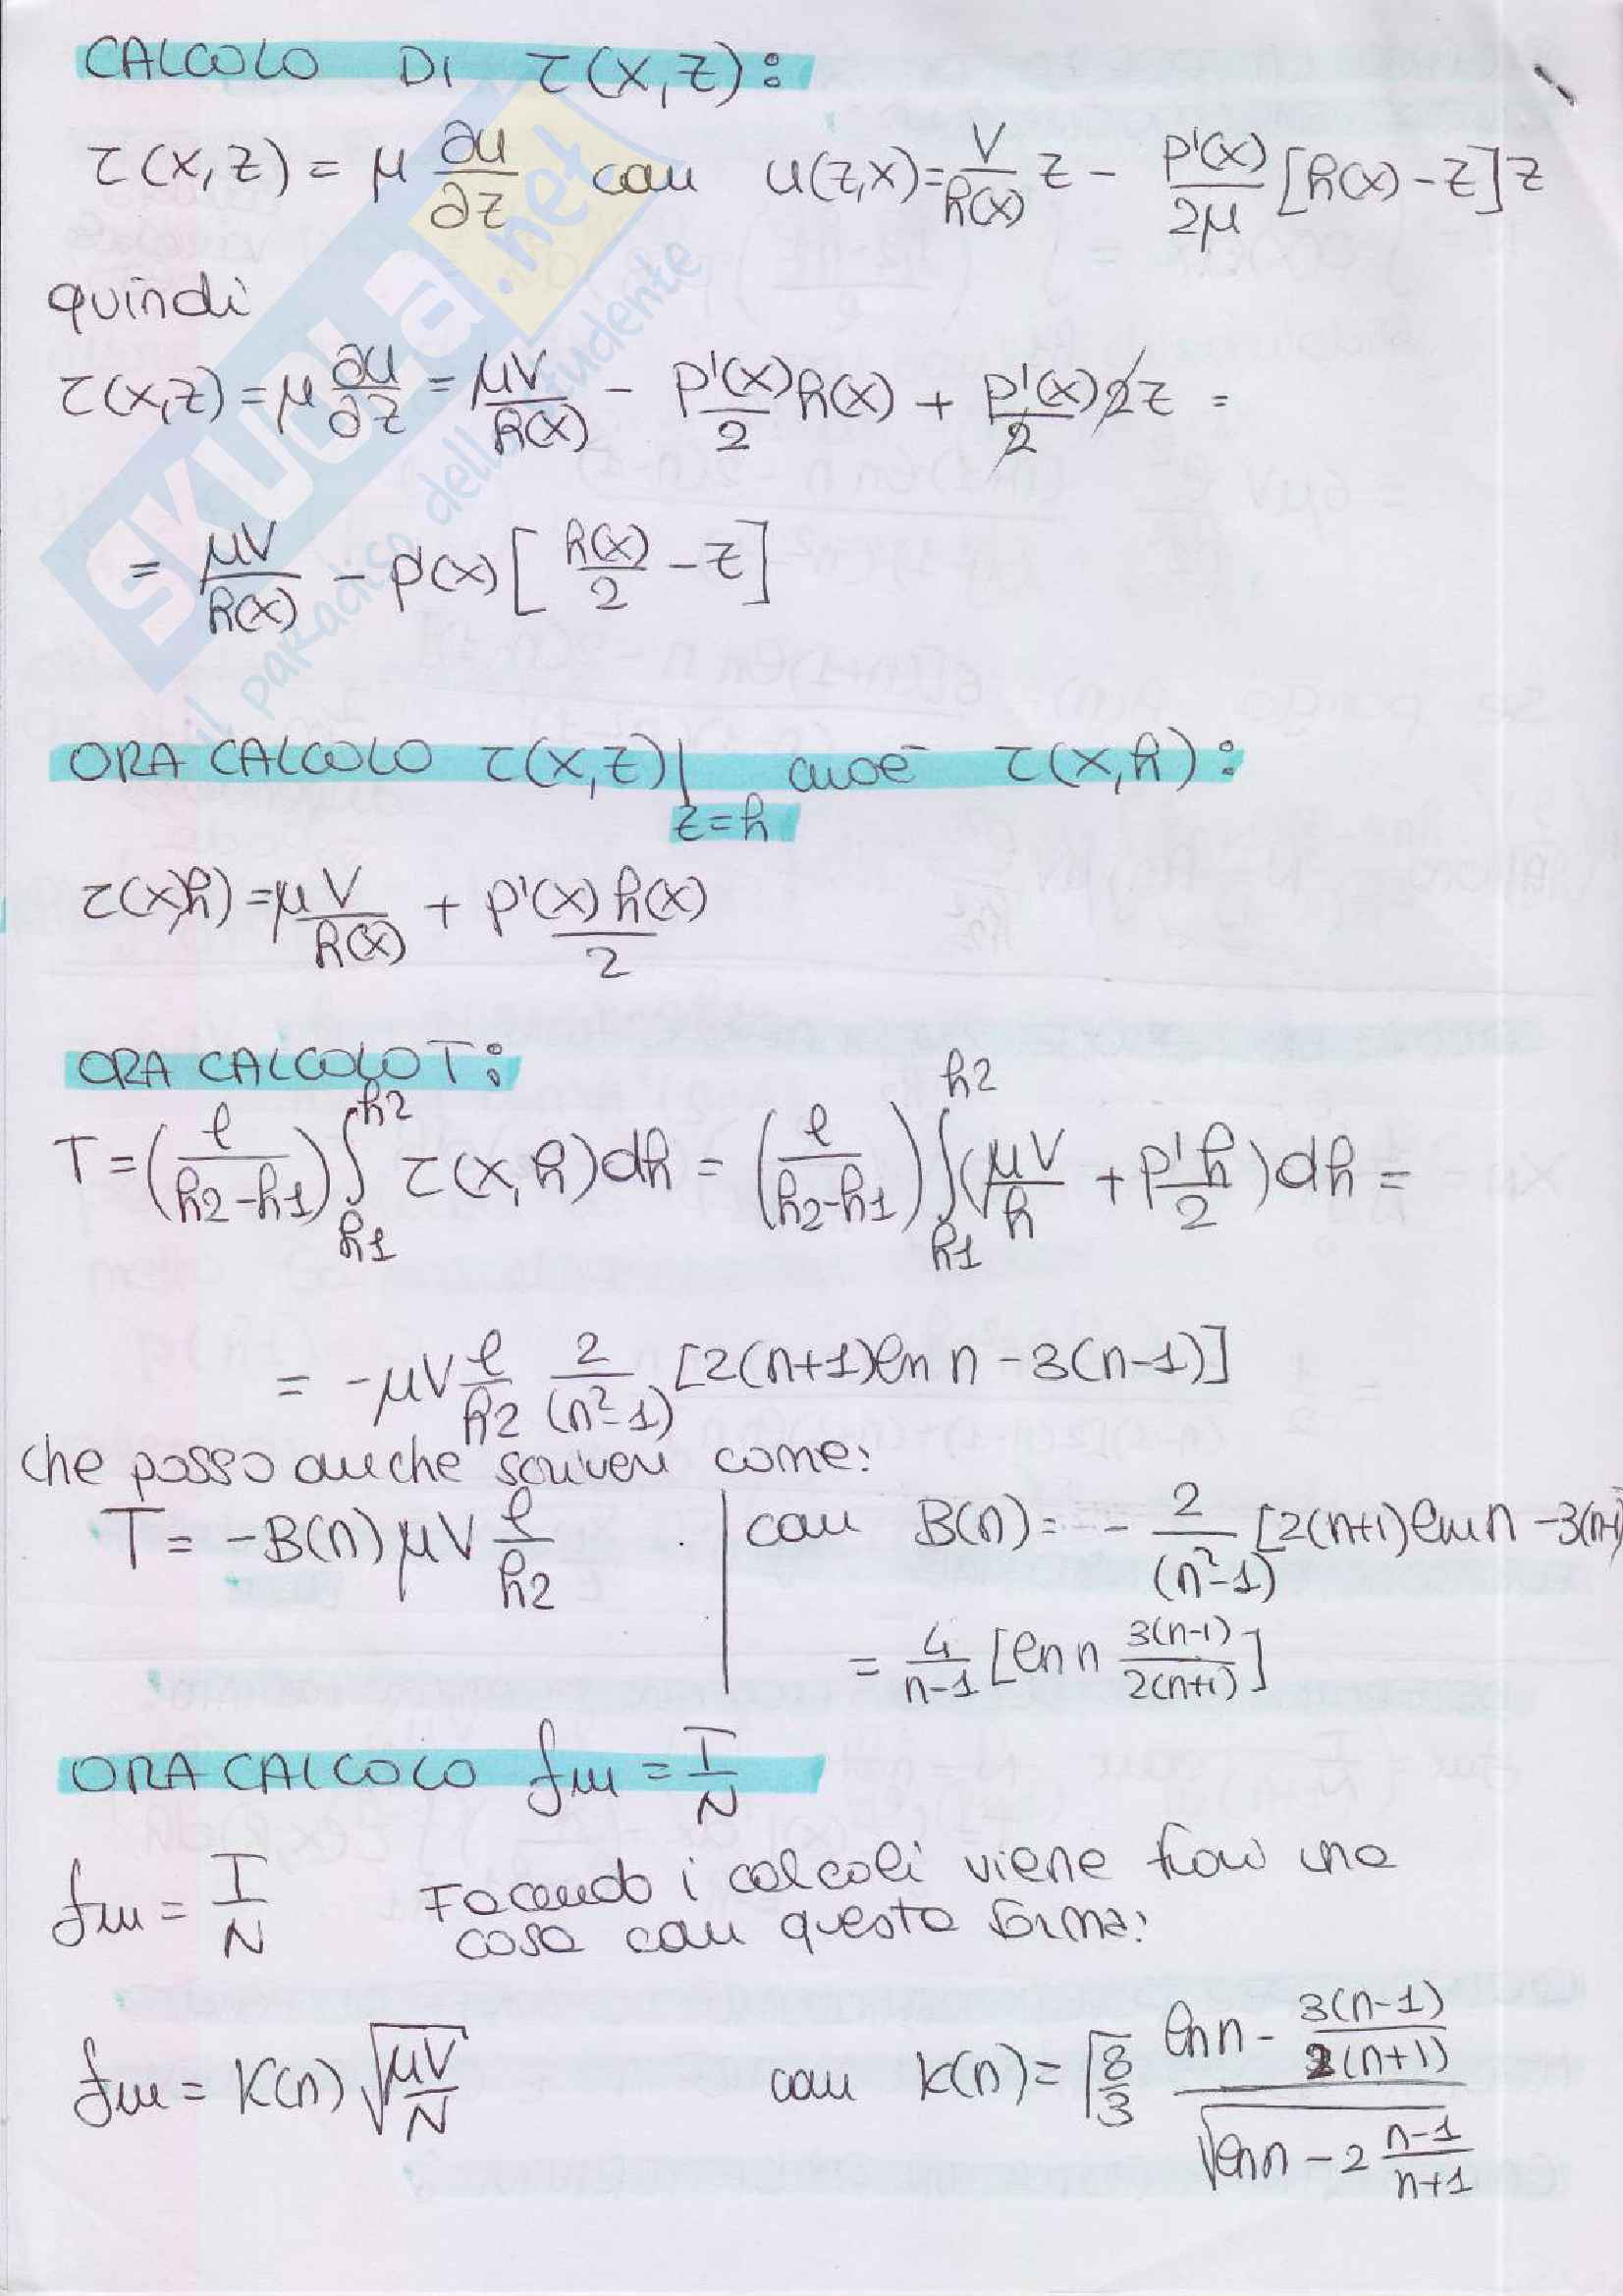 CALCOLO DI τ(x,z):
τ(x,z) = μ ∂u/∂z con u(z,x) = V/h(x) z - p'(x)/2μ [h(x) - z] z
quindi
τ(x,z) = μ ∂u/∂z = μV/h(x) - p'(x)/2 h(x) + p'(x)/2 2z =
= μV/h(x) - p'(x) [h(x)/2 - z]
ORA CALCOLO τ(x,z)|z=h cioè τ(x,h):
τ(x,h) = μ V/h(x) + p'(x) h(x)/2
ORA CALCOLO T:
T = (l/(h2-h1)) ∫h1^h2 τ(x,h) dh = (l/(h2-h1)) ∫h1^h2 (μV/h + p'h/2) dh =
= -μV l/h2 2/(n²-1) [2(n+1)ln n - 3(n-1)]
che posso anche scrivere come:
T = -B(n) μV l/h2 | con B(n) = - 2/(n²-1) [2(n+1) ln n - 3(n-1
= 4/(n-1) [ln n 3(n-1)/2(n+1)]
ORA CALCOLO fm = T/N
fm = T/N Facendo i calcoli viene fuori una
cosa con questa forma:
fm = K(n) √(μV/N) con K(n) = √(8/3) (ln n - 3(n-1)/2(n+1))/√(ln n - 2 (n-1)/(n+1))
SKUOLA.net
il paradiso dello studente